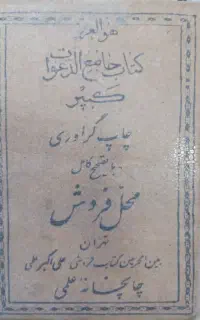 هو العزیز
کتاب جامع الدعوات
کبیر
چاپ گراوری
با تصحیح کامل
محل فروش
تهران
بین الحرمین کتاب فروشی علی اکبر علمی
چاپخانه علمی